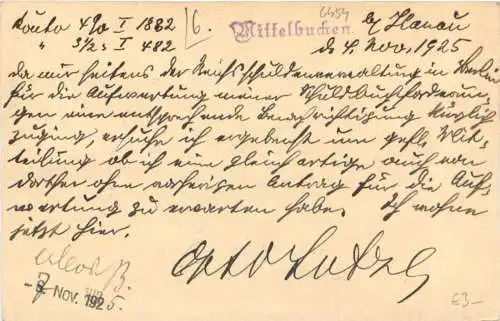 6454
Konto 4% I 1882 /6. Mittelbuchen. b/ Hanau
" 3½% I 482 d. 4. Nov. 1925
Da mir seitens der Reichsschuldenverwaltung in Berlin
für die Aufwertung meiner Schuldbuchforderun-
gen eine entsprechende Benachrichtigung kürzlich
zuging, ersuche ich ergebenst um gefl. Mit-
teilung ob ich eine gleichartige auch von
dorther ohne vorherigen Antrag für die Auf-
wertung zu erwarten habe. Ich wohne
jetzt hier.
Otto
- 7. Nov. 1925.
£3-